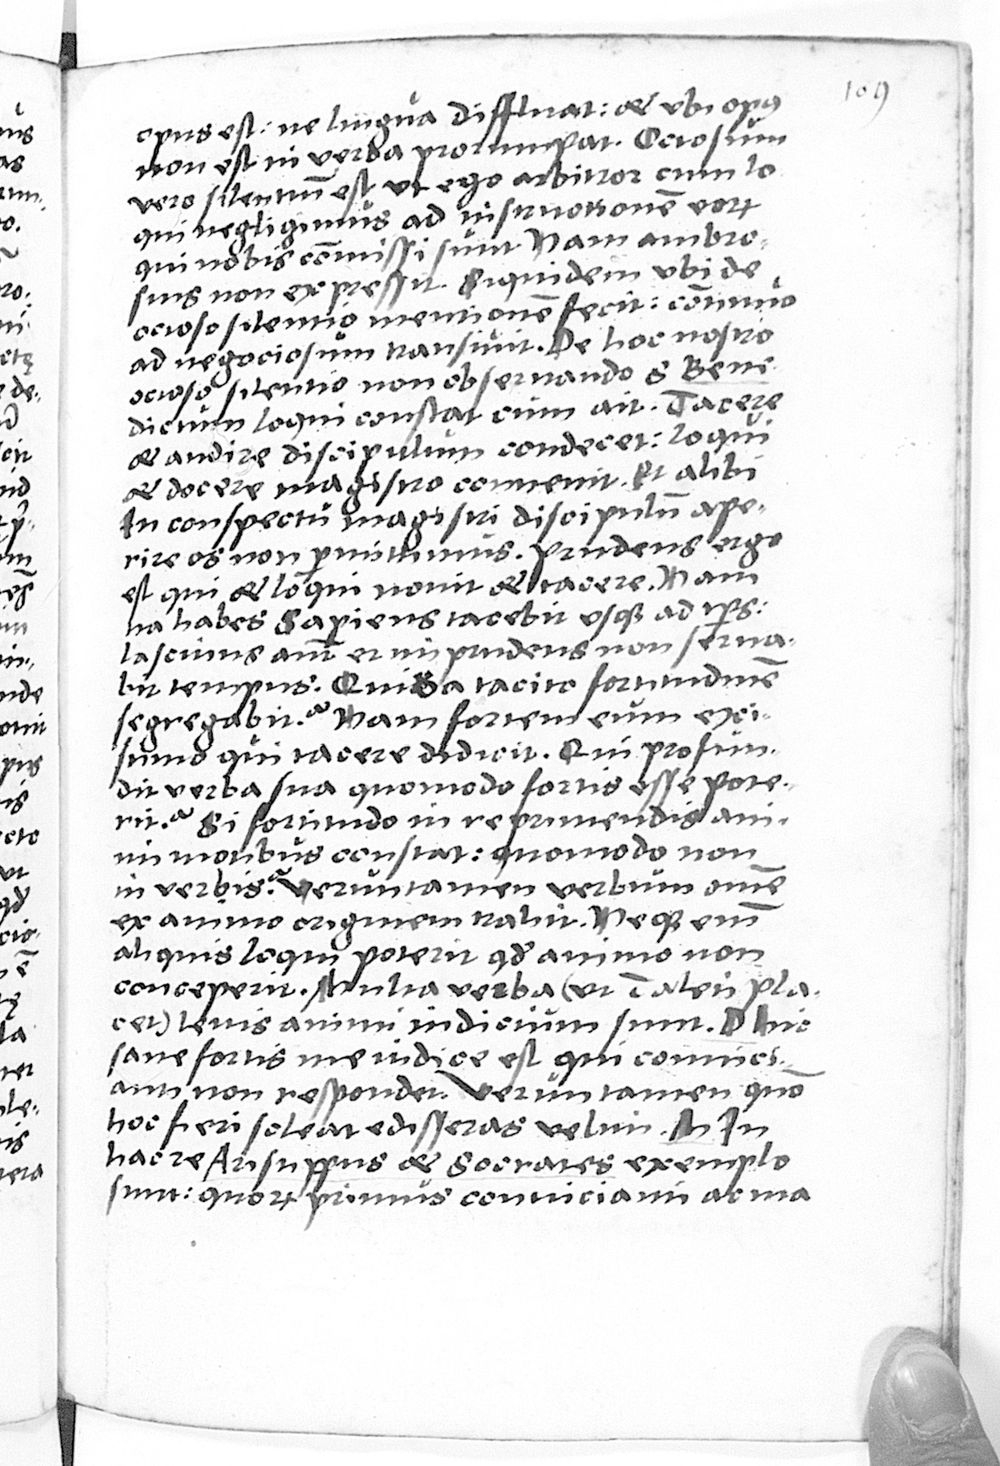 109
opus est: ne lingua diffluat: & ubi opꝰ
non est in verba prorumpat. Ociosum
vero silentiū est ut ego arbitror cum lo
qui negligimus ad instructionē eorꝝ
qui nobis cōmissi sunt Nam ambro-
sius non expressit. Siquidem ubi de
ocioso silentio mentionē fecit: cōtinuo
ad negociosum transivit. De hoc nostro
ocioso silentio non observando S Bene
dictum loqui constat cum ait. Tacere
& audire discipulum condecet: loqui
& docere magistro convenit. Et alibi
In conspectu magistri discipulū ape-
rire os non ꝑmittimus. Prudens ergo
est qui & loqui novit & tacere. Nam
ita habes Sapiens tacebit usqꝫ ad tp̄s:
lascivus aut̄ et imprudens non serva-
bit tempus. Quis a tacito fortitudinē
segregabit? Nam fortem eum exi-
stimo qui tacere didicit. Qui profun-
dit verba sua quomodo fortis esse pote-
rit? Si fortitudo in reprimendis ani-
mi motibus constat: quomodo non
in verbis? Veruntamen verbum omē
ex animo originem trahit. Neqꝫ enī
aliquis loqui poterit qđ animo non
conceperit. Multa verba (ut Taleti pla-
cet) levis animi indicium sunt. D Hic
sane fortis me iudice est qui convici-
anti non respondet. Veruntamen quō
hoc fieri soleat edisseras velim. M In
hac re Aristippus & Socrates exemplo
sunt: quorꝝ primus convicianti ac ma